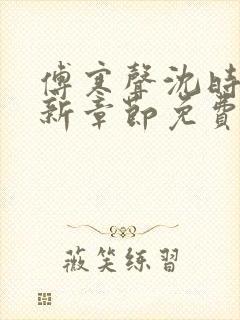 傅寒聲沈時
新章節免費
薇笑练習